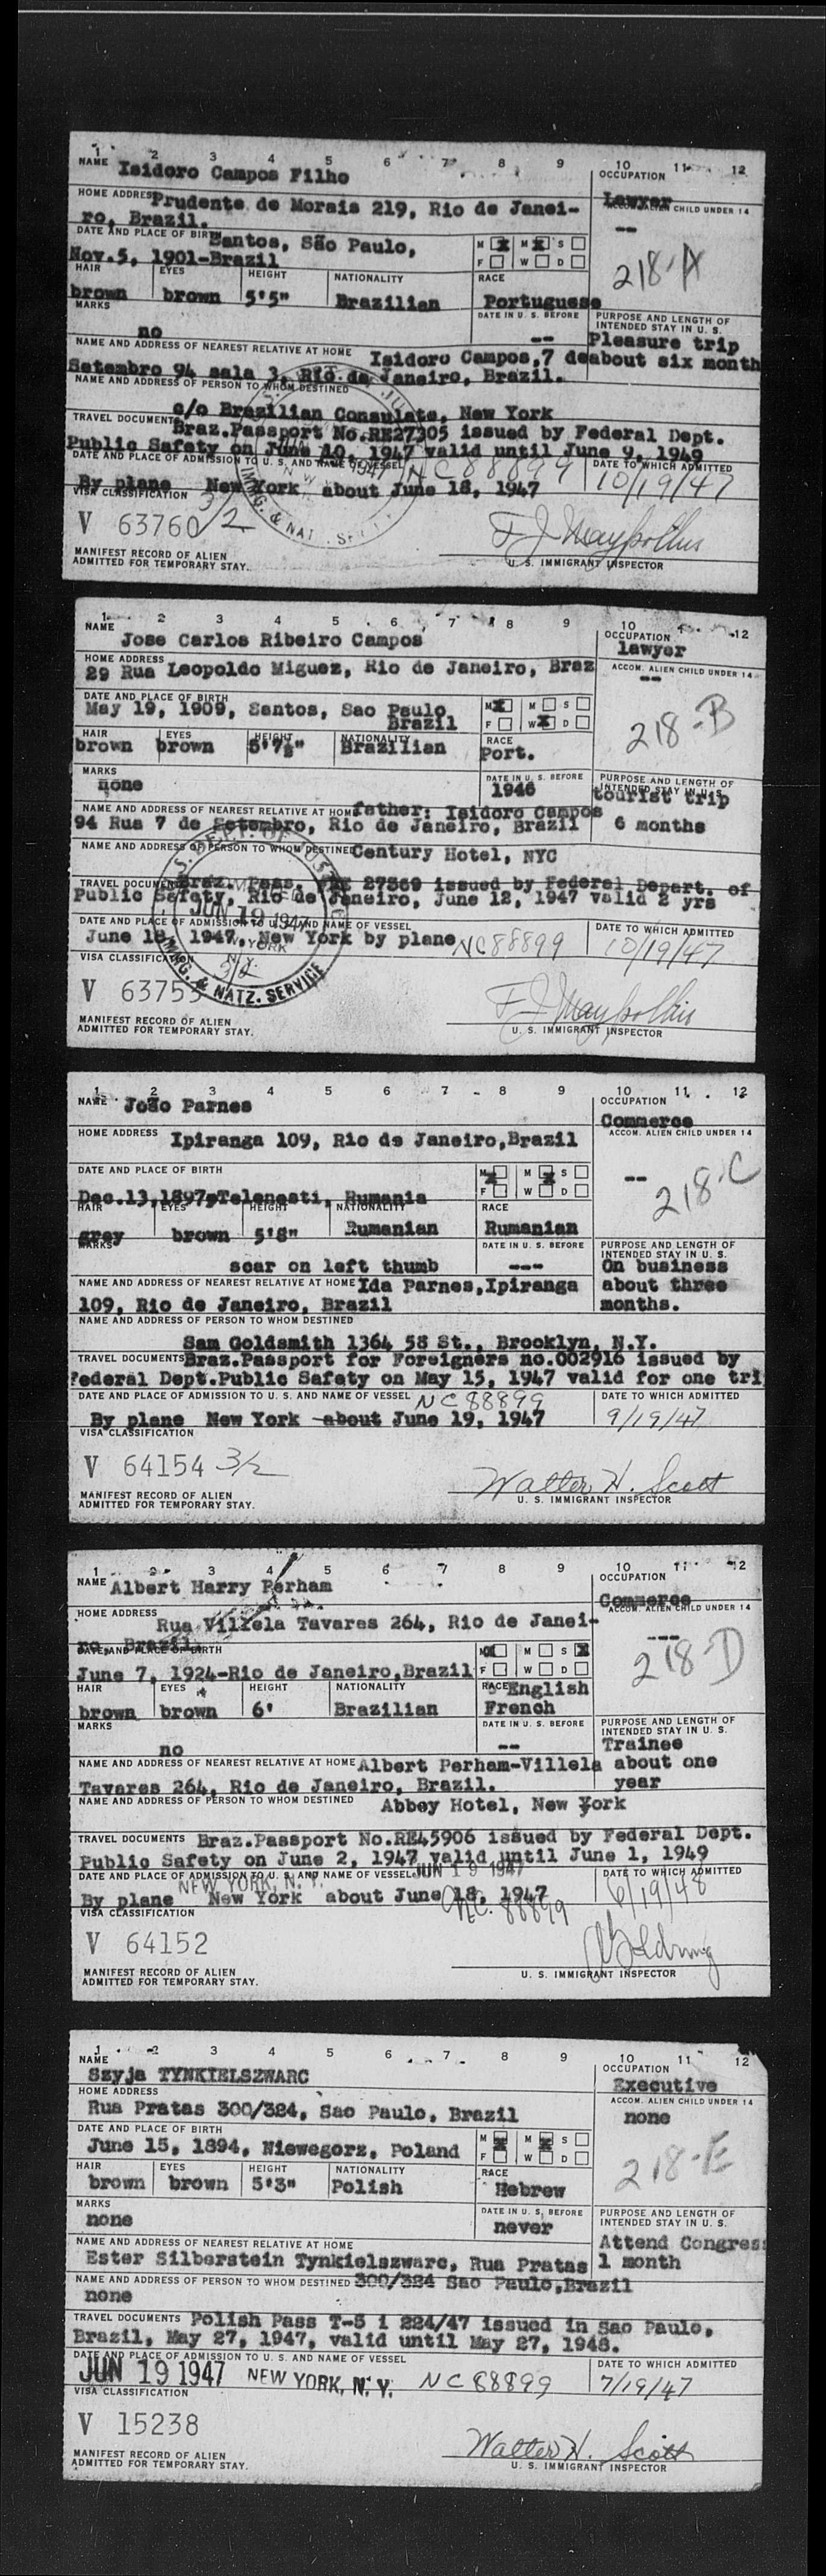 1 2 3 4 5 6 7 8 9 10 11 12
NAME Isidoro Campos Filho OCCUPATION
Lawyer
HOME ADDRESS Prudente de Morais 219, Rio de Janei-
ro, Brazil. ACCOM. ALIEN CHILD UNDER 14
--
DATE AND PLACE OF BIRTH Santos, São Paulo,
Nov.5, 1901-Brazil M X M X S
F W D
218-A
HAIR EYES HEIGHT NATIONALITY RACE
brown brown 5'5" Brazilian Portuguese
MARKS DATE IN U. S. BEFORE PURPOSE AND LENGTH OF
INTENDED STAY IN U. S.
no -- Pleasure trip
NAME AND ADDRESS OF NEAREST RELATIVE AT HOME Isidoro Campos,7 de about six month
Setembro 94 sala 3, Rio de Janeiro, Brazil.
NAME AND ADDRESS OF PERSON TO WHOM DESTINED
c/o Brazilian Consulate, New York
TRAVEL DOCUMENTS Braz.Passport No.RE27305 issued by Federal Dept.
Public Safety on June 10, 1947 valid until June 9, 1949
DATE AND PLACE OF ADMISSION TO U. S. AND NAME OF VESSEL NC88899 DATE TO WHICH ADMITTED
By plane New York about June 18, 1947 10/19/47
VISA CLASSIFICATION 3/2
V 63760
IMMG. & NAT
MANIFEST RECORD OF ALIEN
ADMITTED FOR TEMPORARY STAY. U. S. IMMIGRANT INSPECTOR
1 2 3 4 5 6 7 8 9 10 12
NAME Jose Carlos Ribeiro Campos OCCUPATION
lawyer
HOME ADDRESS
29 Rua Leopoldo Miguez, Rio de Janeiro, Braz ACCOM. ALIEN CHILD UNDER 14
--
DATE AND PLACE OF BIRTH
May 19, 1909, Santos, Sao Paulo
Brazil M X M S
F W X D
218-B
HAIR EYES HEIGHT NATIONALITY RACE
brown brown 5'7½" Brazilian Port.
MARKS DATE IN U. S. BEFORE PURPOSE AND LENGTH OF
INTENDED STAY IN U. S.
none 1946 tourist trip
NAME AND ADDRESS OF NEAREST RELATIVE AT HOME father: Isidoro Campos
94 Rua 7 de Setembro, Rio de Janeiro, Brazil 6 months
NAME AND ADDRESS OF PERSON TO WHOM DESTINED Century Hotel, NYC
TRAVEL DOCUMENTS Braz. Pass. 27369 issued by Federal Depart. of
Public Safety, Rio de Janeiro, June 12, 1947 valid 2 yrs
JUN 19 1947
DATE AND PLACE OF ADMISSION TO U. S. AND NAME OF VESSEL DATE TO WHICH ADMITTED
June 18, 1947, New York by plane NC88899 10/19/47
NEW YORK
N.Y.
VISA CLASSIFICATION 3/2
V 63755
IMMG. & NATZ. SERVICE
MANIFEST RECORD OF ALIEN
ADMITTED FOR TEMPORARY STAY. U. S. IMMIGRANT INSPECTOR
1 2 3 4 5 6 7 8 9 10 11 12
NAME João Parnes OCCUPATION
Commerce
HOME ADDRESS Ipiranga 109, Rio de Janeiro,Brazil ACCOM. ALIEN CHILD UNDER 14
--
218-C
DATE AND PLACE OF BIRTH M X M X S
F W D
Dec.13,1897,Telenesti, Rumania
HAIR EYES HEIGHT NATIONALITY RACE
grey brown 5'8" Rumanian Rumanian
MARKS DATE IN U. S. BEFORE PURPOSE AND LENGTH OF
INTENDED STAY IN U. S.
scar on left thumb --- On business
NAME AND ADDRESS OF NEAREST RELATIVE AT HOME Ida Parnes,Ipiranga about three
109, Rio de Janeiro, Brazil months.
NAME AND ADDRESS OF PERSON TO WHOM DESTINED
Sam Goldsmith 1364 58 St., Brooklyn, N.Y.
TRAVEL DOCUMENTS Braz.Passport for Foreigners no.002916 issued by
Federal Dept.Public Safety on May 15, 1947 valid for one tri
DATE AND PLACE OF ADMISSION TO U. S. AND NAME OF VESSEL NC88899 DATE TO WHICH ADMITTED
By plane New York about June 19, 1947 9/19/47
VISA CLASSIFICATION
V 64154 3/2 Walter H. Scott
MANIFEST RECORD OF ALIEN
ADMITTED FOR TEMPORARY STAY. U. S. IMMIGRANT INSPECTOR
1 2 3 4 5 6 7 8 9 10 11 12
NAME Albert Harry Perham OCCUPATION
Commerce
HOME ADDRESS Rua Villela Tavares 264, Rio de Janei-
ro, Brazil. ACCOM. ALIEN CHILD UNDER 14
---
218-D
DATE AND PLACE OF BIRTH M X M S X
June 7, 1924-Rio de Janeiro,Brazil F W D
HAIR EYES HEIGHT NATIONALITY RACE English
brown brown 6' Brazilian French
MARKS DATE IN U. S. BEFORE PURPOSE AND LENGTH OF
INTENDED STAY IN U. S.
no -- Trainee
NAME AND ADDRESS OF NEAREST RELATIVE AT HOME Albert Perham-Villela about one
Tavares 264, Rio de Janeiro, Brazil. year
NAME AND ADDRESS OF PERSON TO WHOM DESTINED Abbey Hotel, New York
TRAVEL DOCUMENTS Braz.Passport No.RE45906 issued by Federal Dept.
Public Safety on June 2, 1947 valid until June 1, 1949
DATE AND PLACE OF ADMISSION TO U. S. AND NAME OF VESSEL JUN 19 1947 DATE TO WHICH ADMITTED
NEW YORK, N. Y.
By plane New York about June 18, 1947 6/19/48
NC. 88899
VISA CLASSIFICATION
V 64152
MANIFEST RECORD OF ALIEN
ADMITTED FOR TEMPORARY STAY. U. S. IMMIGRANT INSPECTOR
1 2 3 4 5 6 7 8 9 10 11 12
NAME OCCUPATION
Szyja TYNKIELSZWARC Executive
HOME ADDRESS ACCOM. ALIEN CHILD UNDER 14
Rua Pratas 300/324, Sao Paulo, Brazil none
DATE AND PLACE OF BIRTH M X M X S
June 15, 1894, Niewegorz, Poland F W D
218-E
HAIR EYES HEIGHT NATIONALITY RACE
brown brown 5'3" Polish Hebrew
MARKS DATE IN U. S. BEFORE PURPOSE AND LENGTH OF
INTENDED STAY IN U. S.
none never
NAME AND ADDRESS OF NEAREST RELATIVE AT HOME Attend Congress
Ester Silberstein Tynkielszwarc, Rua Pratas 1 month
NAME AND ADDRESS OF PERSON TO WHOM DESTINED 300/324 Sao Paulo,Brazil
none
TRAVEL DOCUMENTS Polish Pass T-S i 224/47 issued in Sao Paulo,
Brazil, May 27, 1947, valid until May 27, 1948.
DATE AND PLACE OF ADMISSION TO U. S. AND NAME OF VESSEL DATE TO WHICH ADMITTED
JUN 19 1947 NEW YORK, N. Y. NC 88899 7/19/47
VISA CLASSIFICATION
V 15238
Walter H. Scott
MANIFEST RECORD OF ALIEN
ADMITTED FOR TEMPORARY STAY. U. S. IMMIGRANT INSPECTOR